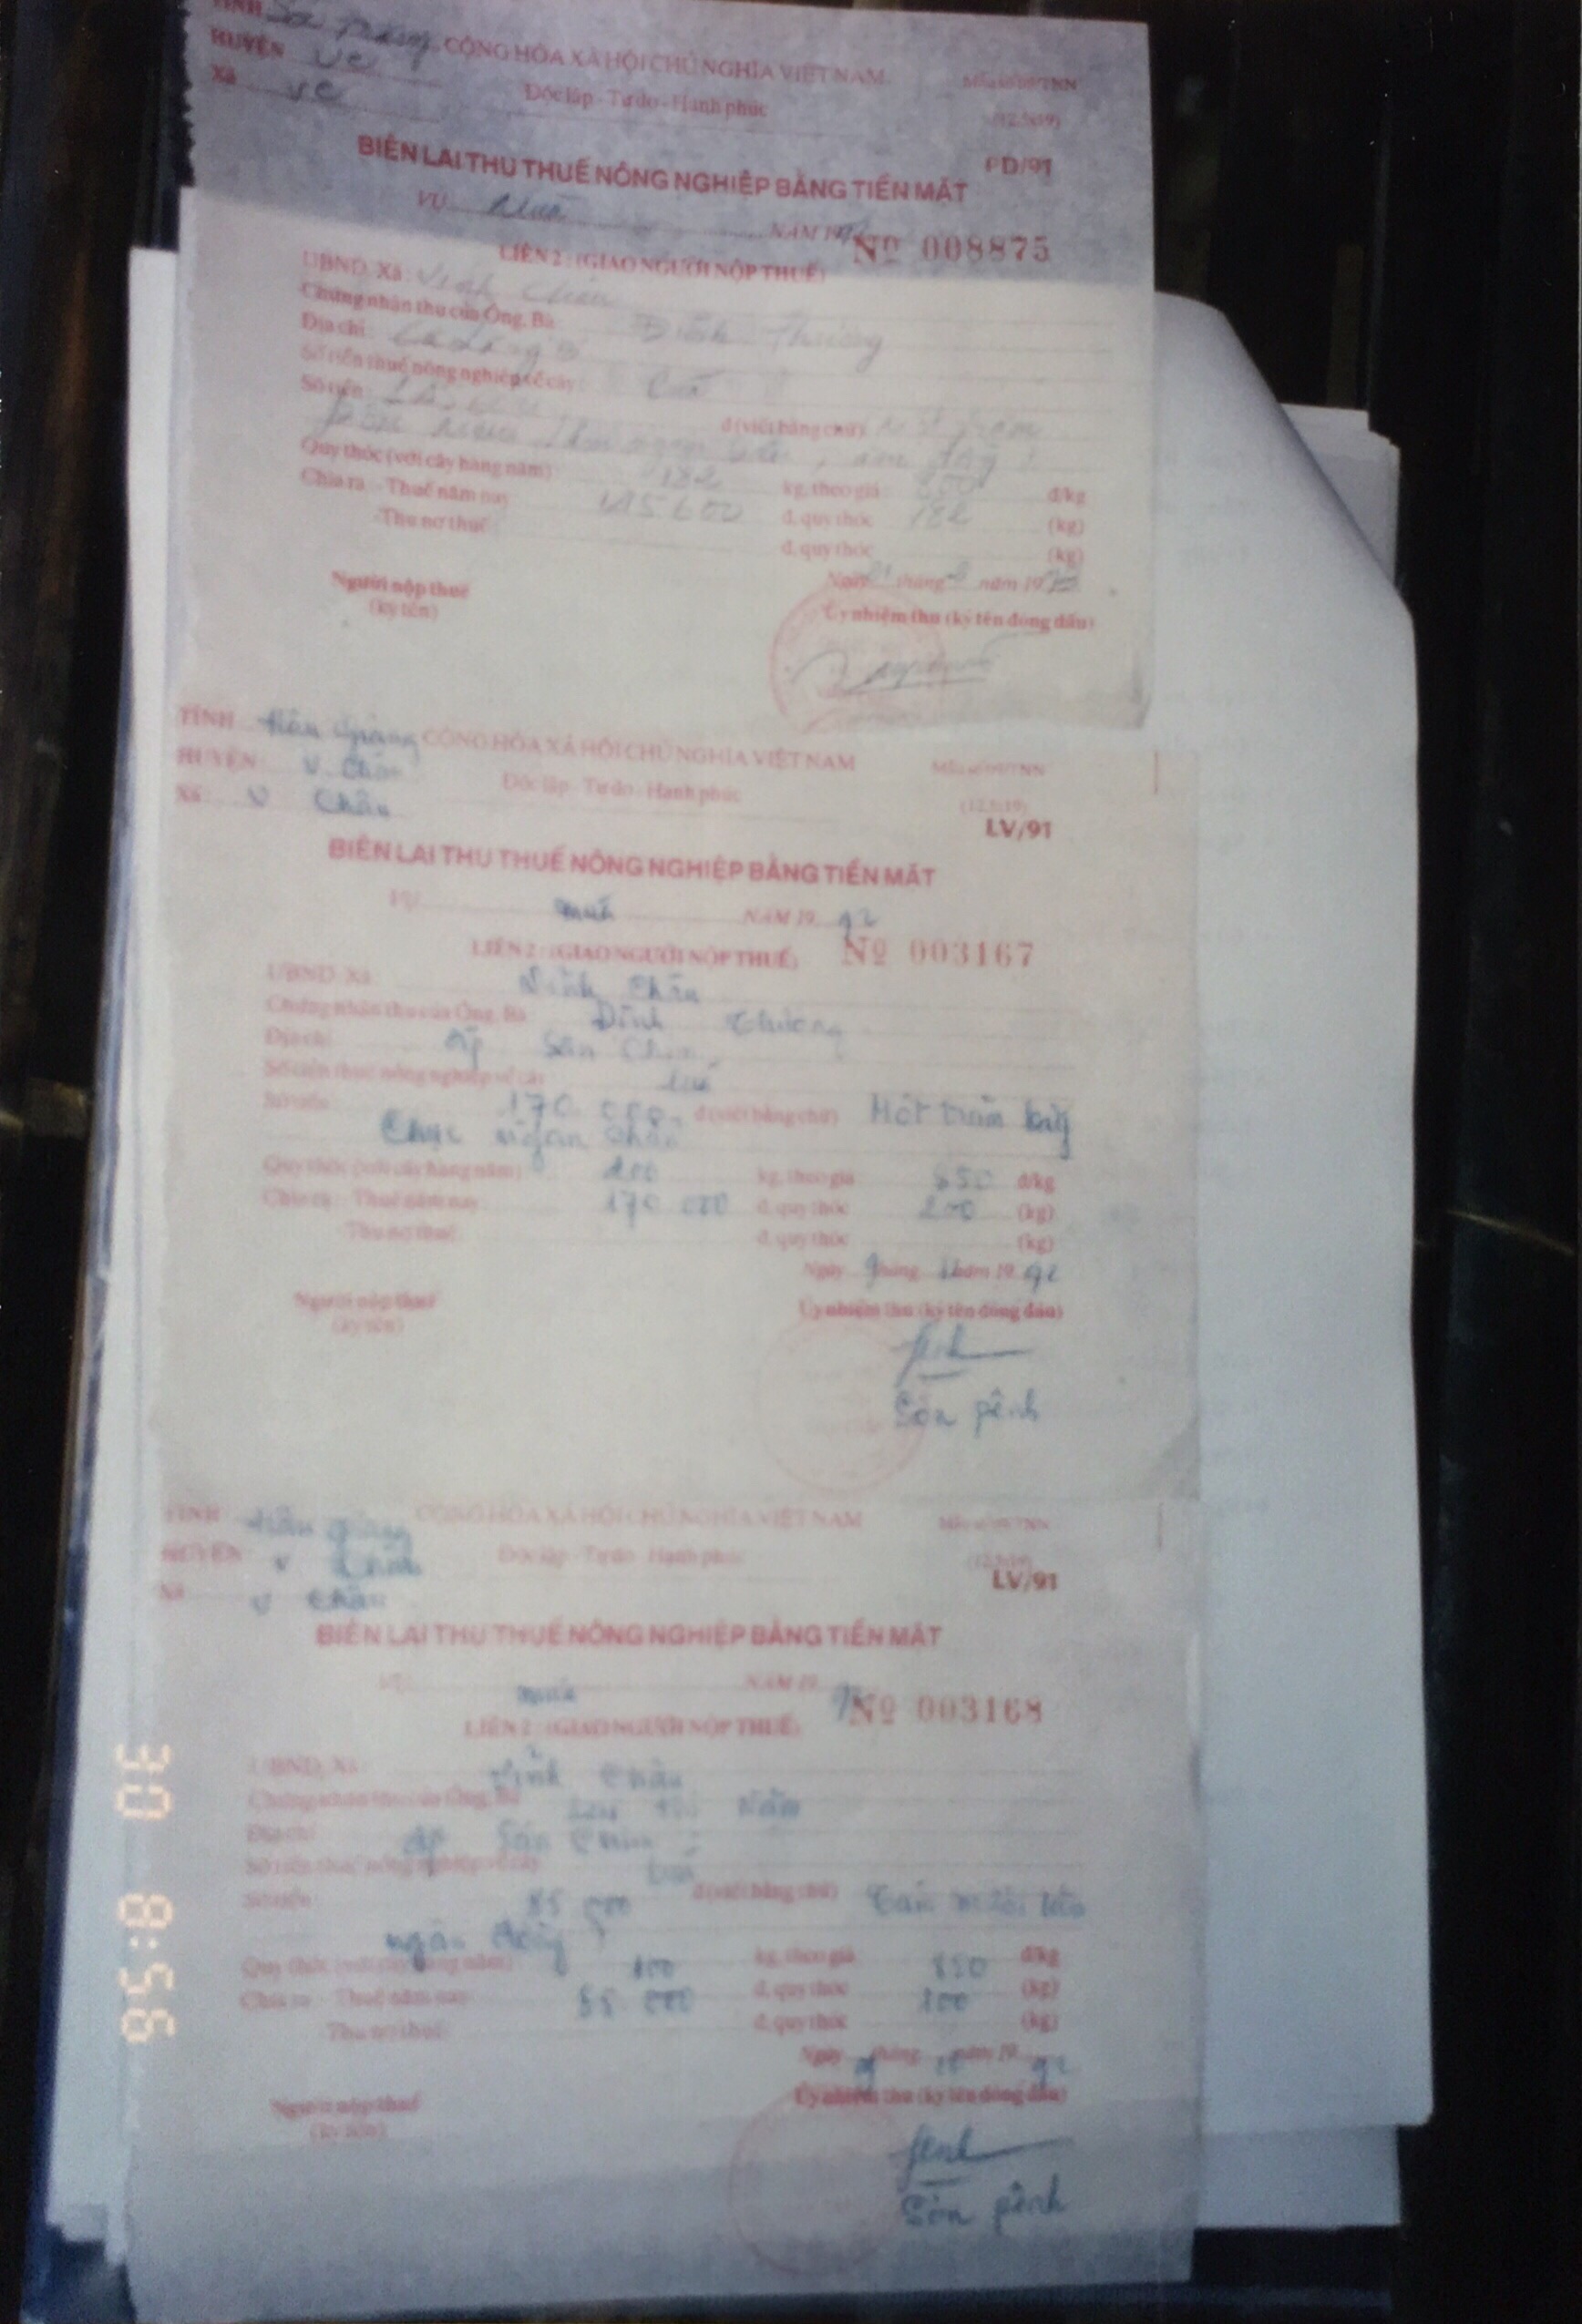 TỈNH Sóc Trăng CỘNG HÒA XÃ HỘI CHỦ NGHĨA VIỆT NAM Mẫu số 09/TNN
HUYỆN VC Độc lập - Tự do - Hạnh phúc
Xã VC
PD/91
BIÊN LAI THU THUẾ NÔNG NGHIỆP BẰNG TIỀN MẶT
VỤ Mùa NĂM 19
LIÊN 2: (GIAO NGƯỜI NỘP THUẾ) Nº 008875
UBND. Xã: Vĩnh Châu
Chứng nhận thu của Ông, Bà Đinh Thương
Địa chỉ:
Số tiền thuế nông nghiệp về cây: Lúa
Số tiền: đ (viết bằng chữ) Một trăm
Quy thóc (với cây hàng năm) 182 kg, theo giá 800 đ/kg
Chia ra: - Thuế năm nay 145600 đ, quy thóc 182 (kg)
- Thu nợ thuế đ, quy thóc (kg)
Ngày tháng năm 19
Người nộp thuế Ủy nhiệm thu (ký tên đóng dấu)
(ký tên)
TỈNH Hậu Giang CỘNG HÒA XÃ HỘI CHỦ NGHĨA VIỆT NAM Mẫu số 09/TNN
HUYỆN V. Châu Độc lập - Tự do - Hạnh phúc
Xã V Châu
LV/91
BIÊN LAI THU THUẾ NÔNG NGHIỆP BẰNG TIỀN MẶT
VỤ mùa NĂM 19 92
LIÊN 2: (GIAO NGƯỜI NỘP THUẾ) Nº 003167
UBND. Xã Vĩnh Châu
Chứng nhận thu của Ông, Bà Đinh Thương
Địa chỉ ấp Sân Chim
Số tiền thuế nông nghiệp về cây lúa
Số tiền 170.000 đ (viết bằng chữ) Một trăm bảy
Chục ngàn chẵn
Quy thóc (với cây hàng năm) 200 kg, theo giá 850 đ/kg
Chia ra: - Thuế năm nay 170.000 đ, quy thóc 200 (kg)
Thu nợ thuế đ, quy thóc (kg)
Ngày 9 tháng năm 19 92
Người nộp thuế Ủy nhiệm thu (ký tên đóng dấu)
(ký tên)
Sơn pênh
TỈNH Hậu Giang CỘNG HÒA XÃ HỘI CHỦ NGHĨA VIỆT NAM Mẫu số 09/TNN
HUYỆN V Châu Độc lập - Tự do - Hạnh phúc
Xã V Châu
LV/91
BIÊN LAI THU THUẾ NÔNG NGHIỆP BẰNG TIỀN MẶT
VỤ mùa NĂM 19
LIÊN 2: (GIAO NGƯỜI NỘP THUẾ) Nº 003168
UBND. Xã Vĩnh Châu
Chứng nhận thu của Ông, Bà
Địa chỉ ấp Sân Chim
Số tiền thuế nông nghiệp về cây lúa
Số tiền 85 000 đ (viết bằng chữ) Tám mươi lăm
ngàn đồng
Quy thóc (với cây hàng năm) 100 kg, theo giá 850 đ/kg
Chia ra: Thuế năm nay 85 000 đ, quy thóc 100 (kg)
Thu nợ thuế đ, quy thóc (kg)
Ngày 9 tháng năm 19 92
Người nộp thuế Ủy nhiệm thu (ký tên đóng dấu)
(ký tên)
Sơn pênh
30 8:56